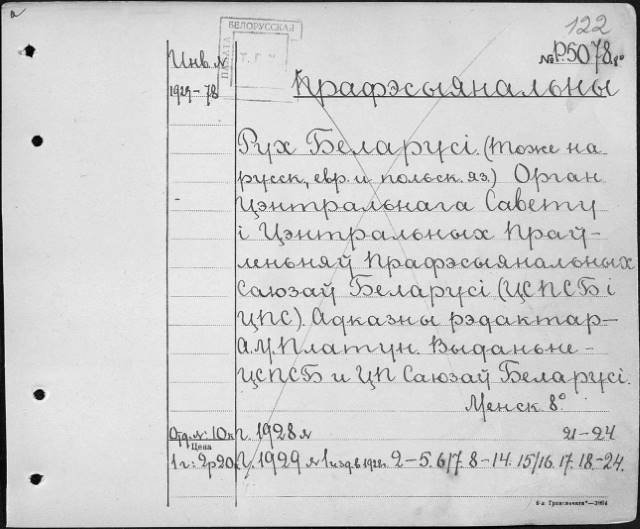 а
122
БЕЛОРУССКАЯ
ПАЛАТА
Инв. №
№ Р5078 8°
1929-78
Прафэсыянальны
Рух Беларусі. (тоже на
русск, евр. и польск. яз.) Орган
Цэнтральнага Савету
і Цэнтральных Праў-
леньняў Прафэсыянальных
Саюзаў Беларусі (ЦСПСБ і
ЦПС). Адказны рэдактар-
А.У. Платун. Выданьне-
ЦСПСБ и ЦП Саюзаў Беларусі.
Менск 8°
Отд. №: 10к г. 1928 № 21-24
Цена
1 г: 2р20к г. 1929 № 1 изд. в 1928г. 2-5. 6/7. 8-14. 15/16. 17. 18-24.